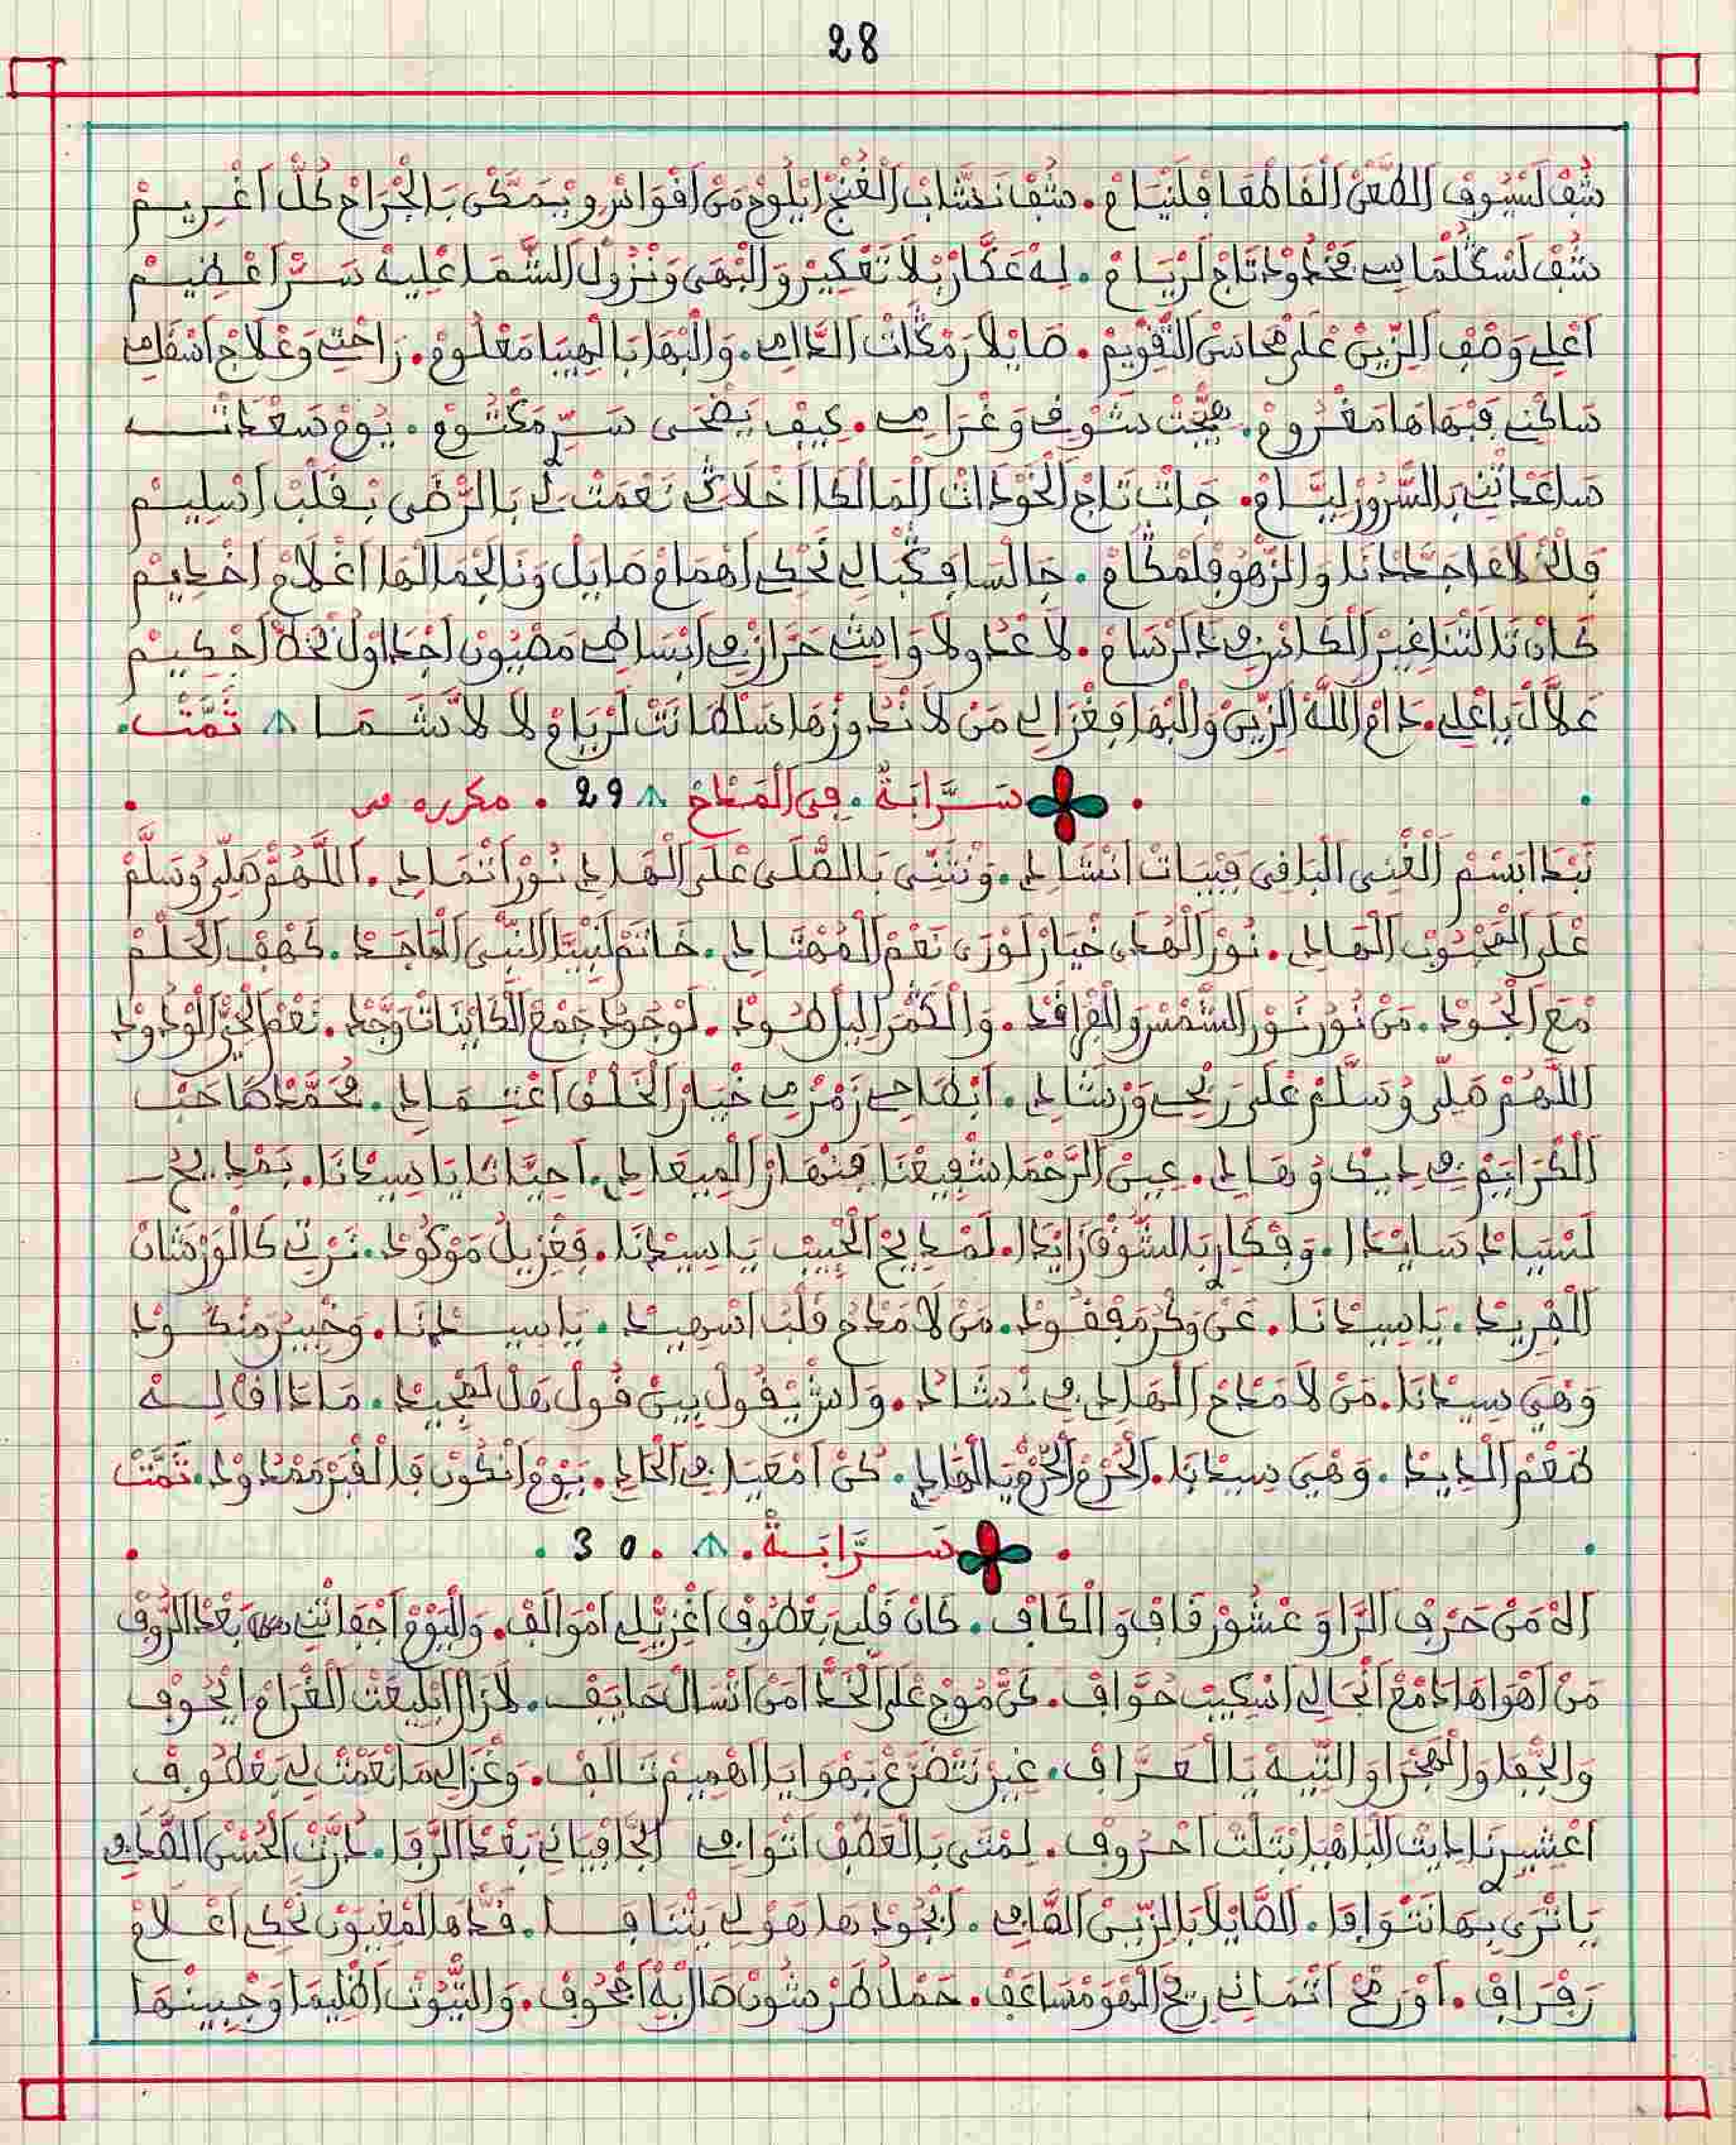 28
شُفْ لَسْيُوفْ الطَّعْنْ الْفَاطْعَا فِلْتِيَامْ. شُفْ نَشَّابْ الْغُنْجْ ايْلُوحْ مَنْ اقْوَاسُ وِيْمَكَّنْ بَالْجْرَاحْ كُلّْ اغْرِيمْ
شُفْ تَاجْ لَرْيَامْ. لِهْ عَكَّارْ بْلاَ تَعْكِيرْ وَالْبْهَى وَنْزُولْ الشَّمَا عْلِيهْ سَرّْ اعْظِيمْ
اعْلِي وَصْفْ الزِّينْ عْلَى مْحَاسَنْ التَّقْوِيمْ. صَايْلاَ رَمْكَاتْ الدَّامِي. وَالْبْهَا بَالْهِيبَا مَعْلُومْ. رَاحْتِي وَعْلاَجْ اسْقَامِي
سَاكْنِي فَبْهَاهَا مَغْرُومْ. هَيّْجَتْ شَوْقِي وَغْرَامِي. كِيفْ يَضْحَى سَرِّي مَكْتُومْ. يُومْ سَعْدَاتْ
سَاعْدَاتْنِي بَالسُّرُورْ لِيَّامْ. جَاتْ تَاجْ الْخَوْدَاتْ الْمَالْكَا اخْلاَكِي نَعْمَتْ لِي بَالرّْضَى بْقَلْبْ اسْلِيمْ
وَالزّْهُو فِلْمْكَامْ. جَالْسَا فَكْبَالِي تَحْكِي اهْمَامْ صَايْلْ وَنَا لَجْمَالْهَا اغْلاَمْ اخْدِيمْ
كَانْ تَالَتْنَا غِيرْ الْكَاسْ لاَ عْدُو لاَ وَاشِي حَرَّازْ فِي ابْسَاطِي مَصْيُونْ اجْدَاوَلْ احْكِيمْ
عَلاَّلْ يِاعْلِي. دَامْ اللَّهْ الزِّينْ وَالْبْهَا فَغْزَالِي مَنْ لاَ نْدُوزْهَا سَلْطَانَتْ لَرْيَامْ لاَ لاَّ شَمَا تَمَّتْ.
سَرَّابَةْ. فِي الْمَدْحْ 29. مكرره س
نَبْدَا ابْسْمْ الْغْنِي الْبَاقِي فِبْيَاتْ انْشَادِي. وَنْثَنِّي بَالصّْلَى عْلَى الْهَادِي نُورْ اتْمَادِي. اللَّهُمَّ صَلِّي وُسَلَّمْ
عْلَى الْمَحْبُوبْ الْهَادِي. نُورْ الْهْدَى خْيَارْ لَوْرَى نَعْمْ الْمُهْتَادِي. خَاتَمْ لَنْبِيَّا النّْبِي الْمَاجَدْ. كَهْفْ الْحَلْمْ
مْعَ الْجُودْ. مَنْ نُورُ نُورْ الشَّمْسْ وَالْفْرَاقَدْ. وَالْكْمَرْ اللِّيلْ طُودْ. لَوْجُودُ جَمْعْ الْكَايْنَاتْ وَجَّدْ. نَعْمْ الْحَيّْ الْوْدُودْ
اللَّهُمَّ صَلِّي وُسَلَّمْ عْلَى رَبْحِي وَرْشَادِي. ابْطَاحِي زَمْزْمِي خْيَارْ الْخَلْقْ اعْتِمَادِي. مُحَمَّدْ صَاحَبْ
الْكْرَايَمْ فِي دِيكْ وْهَادِي. عِينْ الرَّحْمَا شْفِيعْنَا فِنْهَارْ الْمِيعَادِي. احْيَاتْنَا يَا سِيدْنَا. بَمْدِيحْ
لَسْيَادْ سَايْدَا. وَفْكَارِي بَالشُّوقْ زَايْدَا. لَمْدِيحْ الْحْبِيبْ يَا سِيدْنَا. فَغْزِيلُ مَوْكُودْ. نَرْنِي كَالْوَرْشَانْ
الْفْرِيدْ. يَا سِيدْنَا. عَنْ وَكْرُ مَفْقُودْ. مَنْ لاَ مْدَحْ قَلْبُ اسْهِيدْ. يَا سِيدْنَا. وَخْبِيرُ مَنْكُودْ
وَهْيَ سِيدْنَا. مَنْ لاَ مْدَحْ الْهَادِي فِي نْشَادُ. وَاشْ يْقُولْ بِينْ قُولْ هَلْ لَمْجِيدْ. مَا دَاقْ لِهْ
طَعْمْ الْدِيدْ. وَهْيَ سِيدْنَا. الْحُرْمْ الْحُرْمْ يَا الْهَادِي. كُنْ امْعَيَا فِي الْحَادِي. يُومْ انْكُونْ فَالْقْبَرْ مَمْدُودْ. تَمَّتْ
سَرَّابَةْ. 30.
الاهْ مَنْ حَرْفْ الرَّا وَعْشُورْ قَافْ وَالْكَافْ. كَانْ قَلْبِي بَعْطُوفْ اغْزِيّْلِي امْوَالَفْ. وَالْيُومْ اجْفَاتْنِي بَعْدْ الرُّوفْ
مَنْ اهْوَاهَا دَمْعْ انْجَالِي اسْكِيبْ حُوَّافْ. كَنّْ مُوجْ عْلَى الْخَدّْ امَنْ انْسَالْ حَايَفْ. لاَزَالْ ابْلِيعْتْ الْغْرَامْ ايْحُوفْ
وَالْجْفَا وَالْهَجْرَا وَالتِّيهْ يَا الْعَرَّافْ. غِيرْ نَتْضَرَّعْ بَهْوَايَا اهْمِيمْ تَالَفْ. وَغْزَالِي مَا نَعْمَتْ لِي بَعْطُوفْ
اعْشِيرْنَا دَابْتْ الْبَاهْيَا بَتْلَتْ احْرُوفْ. لِمْتَى بَالْعَطْفْ اتْوَافِي الْجَافْيَانِي بَعْدْ الرَّفَا. دُرَّتْ الْحُسْنْ الصَّافِي
يَا تْرَى بِهَا نَتْوَافَا. الصَّايْلاَ بَالزِّينْ الصَّافِي. ابْجُودْهَا هَوْلِي يَتْنَافَا. قَدّْهَا لَمْغَيْوَنْ تَحْكِي اعْلاَمْ
رَفْرَافْ. اوْ رَمْحْ اتْمَانِي رِيحْ الْهْوَ مْسَاعَفْ. حَمْلُ طَرْشُونْ صَالْ بِهْ اجْحُوفْ. وَالتّْيُوتْ اظْلِيمَا وَجْبِينْهَا